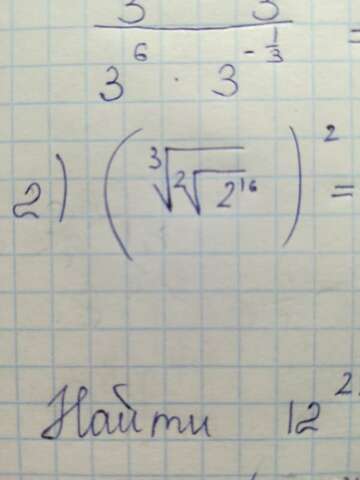 3 3
3^6 · 3^{-1/3} =
2) (∛(²√(2^16)))^2 =
Найти 12^2